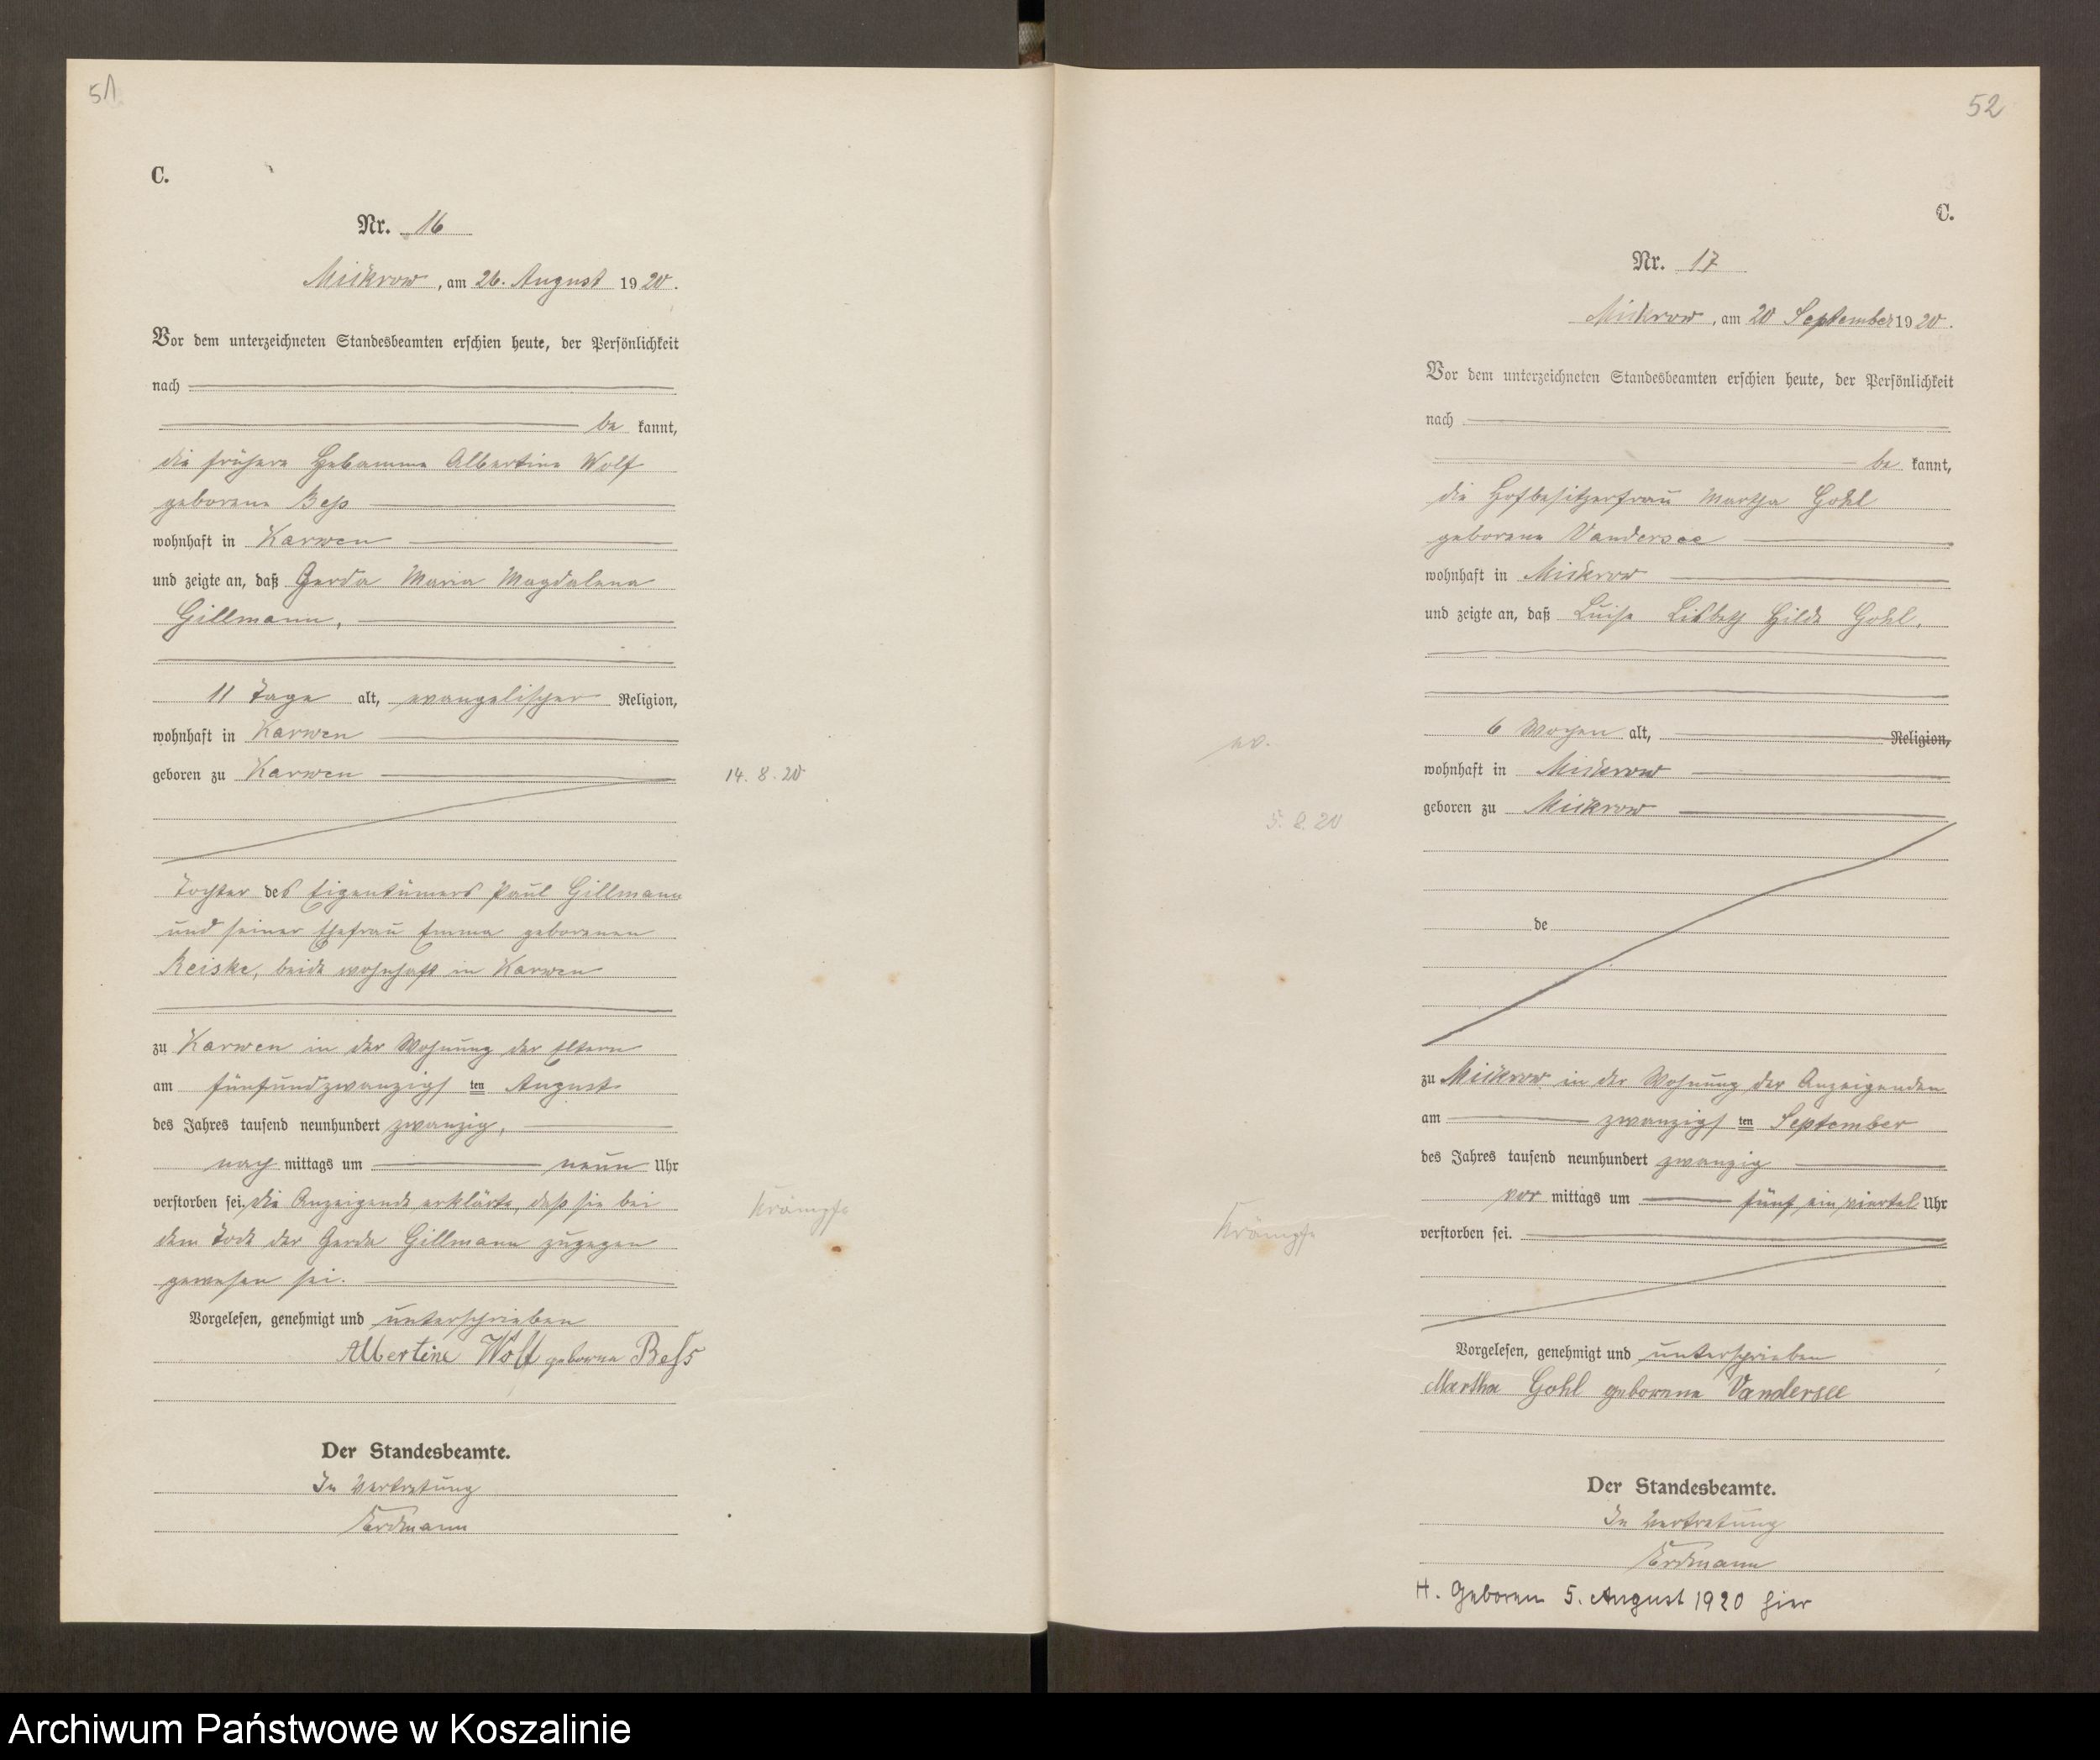 51
C.
Nr. 16
Mickrow, am 26. August 1920.
Vor dem unterzeichneten Standesbeamten erschien heute, der Persönlichkeit
nach
be kannt,
die frühere Hebamme Albertine Wolf
geborene Beß
wohnhaft in Karwen
und zeigte an, daß Gerda Maria Magdalena
Gillmann,
11 Tage alt, evangelischer Religion,
wohnhaft in Karwen
geboren zu Karwen
14. 8. 20
Tochter des Eigentümers Paul Gillmann
und seiner Ehefrau Emma geborenen
Reiske, beide wohnhaft in Karwen
zu Karwen in der Wohnung der Eltern
am fünfundzwanzigsten August
des Jahres tausend neunhundert zwanzig,
nach mittags um neun Uhr
verstorben sei, die Anzeigende erklärte, daß sie bei
Krämpfe
dem Tode der Gerda Gillmann zugegen
gewesen sei.
Vorgelesen, genehmigt und unterschrieben
Albertine Wolf geborene Beß
Der Standesbeamte.
In Vertretung
Erdmann
52
C.
Nr. 17
Mickrow, am 20 September 1920.
Vor dem unterzeichneten Standesbeamten erschien heute, der Persönlichkeit
nach
be kannt,
die Hofbesitzerfrau Martha Gohl
geborene Vandersee
wohnhaft in Mickrow
und zeigte an, daß Luise Lisbeth Hilda Gohl,
6 Wochen alt, Religion,
ev.
wohnhaft in Mickrow
geboren zu Mickrow
5. 8. 20
de
zu Mickrow in der Wohnung der Anzeigenden
am zwanzigsten September
des Jahres tausend neunhundert zwanzig
vor mittags um fünf ein viertel Uhr
verstorben sei.
Krämpfe
Vorgelesen, genehmigt und unterschrieben
Martha Gohl geborene Vandersee
Der Standesbeamte.
In Vertretung
Erdmann
H. Geboren 5. August 1920 hier
Archiwum Państwowe w Koszalinie